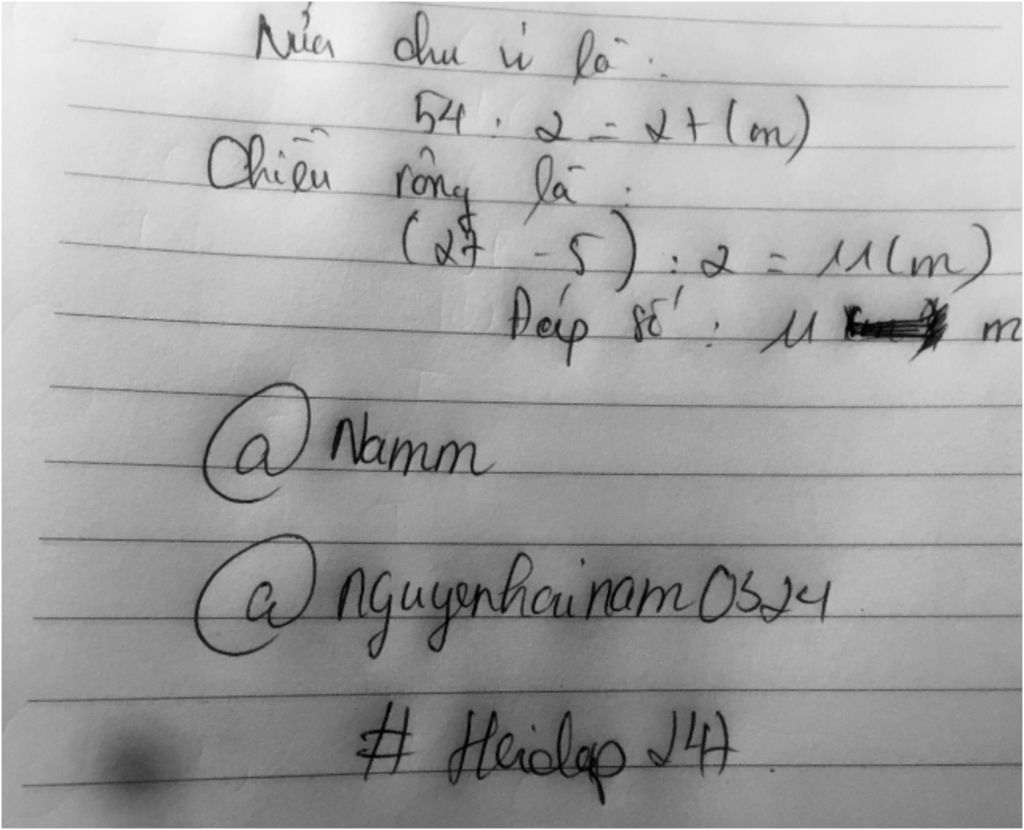 Nửa chu vi là :
54 : 2 = 27 (m)
Chiều rộng là :
(27 - 5) : 2 = 11 (m)
Đáp số : 11 m
@ Namm
@ nguyenhainam0324
# Hoidap 247